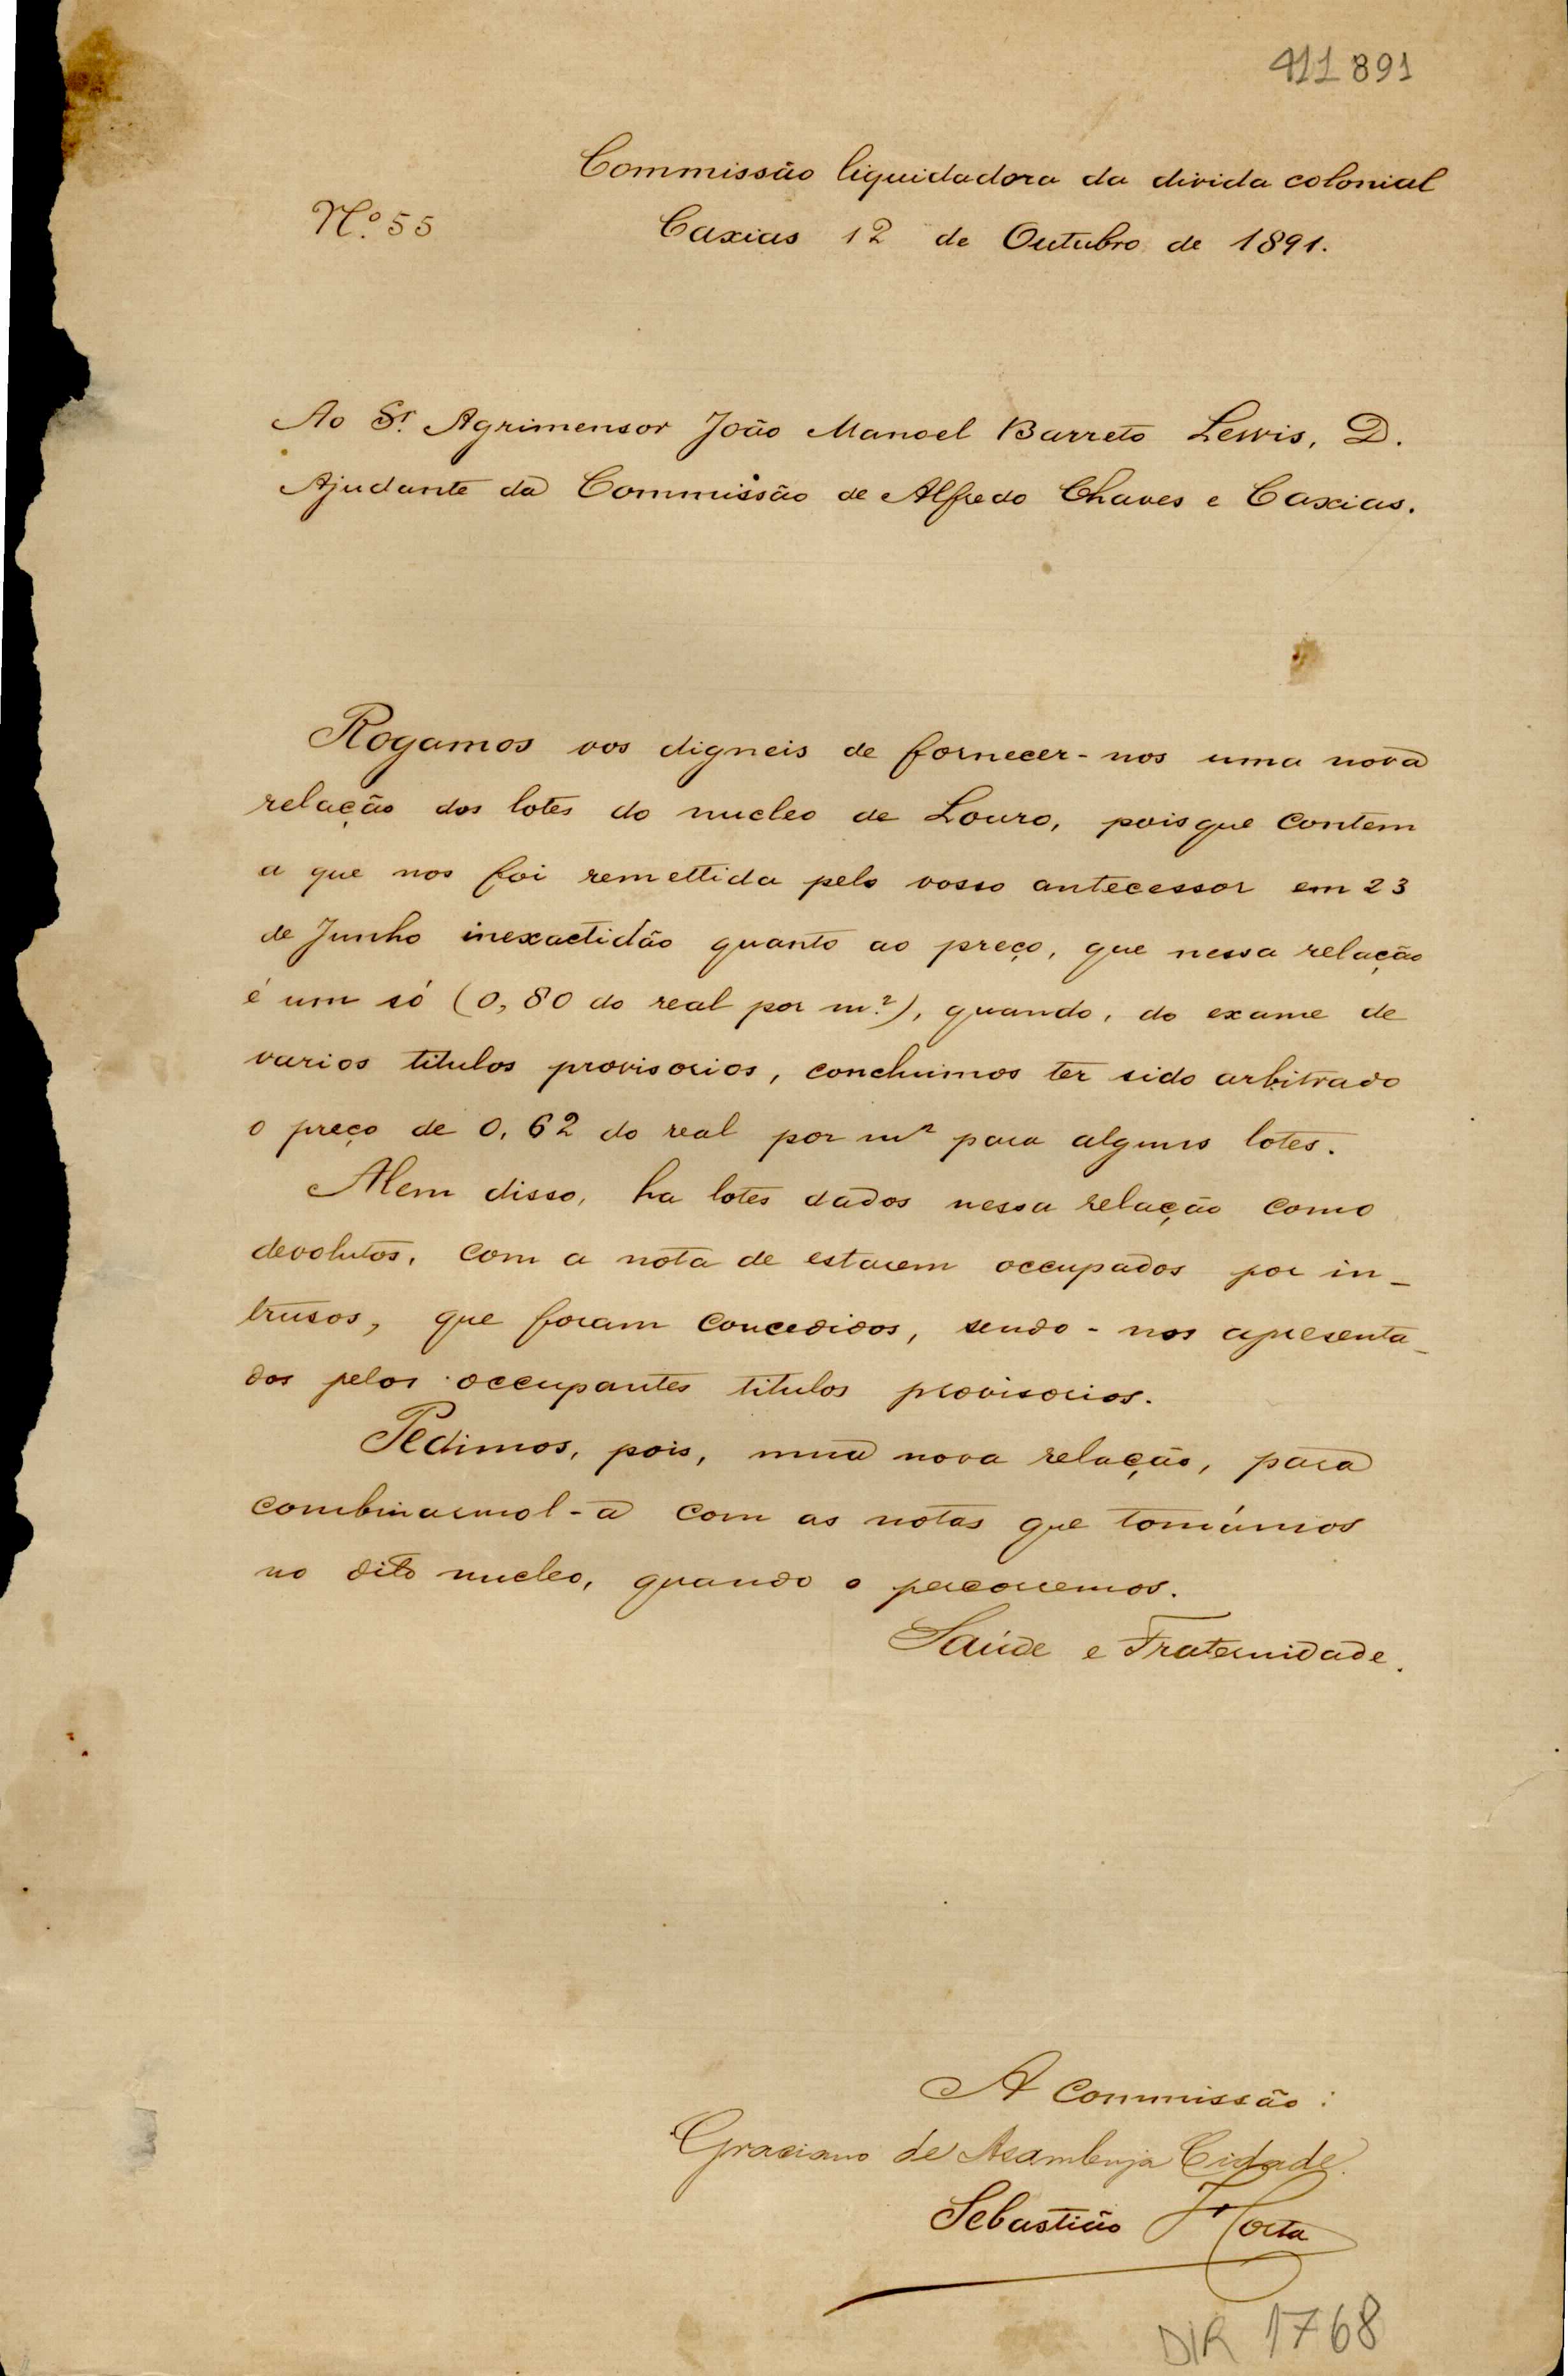 411891
Commissão liquidadora da divida colonial
Nº 55
Caxias 12 de Outubro de 1891.
Ao Sr. Agrimensor João Manoel Barreto Lewis, D.
Ajudante da Commissão de Alfredo Chaves e Caxias.
Rogamos vos digneis de fornecer-nos uma nova
relação dos lotes do nucleo de Louro, poisque contem
a que nos foi remettida pelo vosso antecessor em 23
de Junho inexactidão quanto ao preço, que nessa relação
é um só (0,80 do real por m.²), quando, do exame de
varios titulos provisorios, concluimos ter sido arbitrado
o preço de 0,62 do real por m² para alguns lotes.
Alem disso, ha lotes dados nessa relação como
devolutos, com a nota de estarem occupados por in-
trusos, que foram concedidos, sendo-nos apresenta-
dos pelos occupantes titulos provisorios.
Pedimos, pois, uma nova relação, para
combinarmol-a com as notas que tomámos
no dito nucleo, quando o percorremos.
Saúde e Fraternidade.
A Commissão:
Graciano de Azambuja Cidade.
Sebastião Horta
DIR 1768